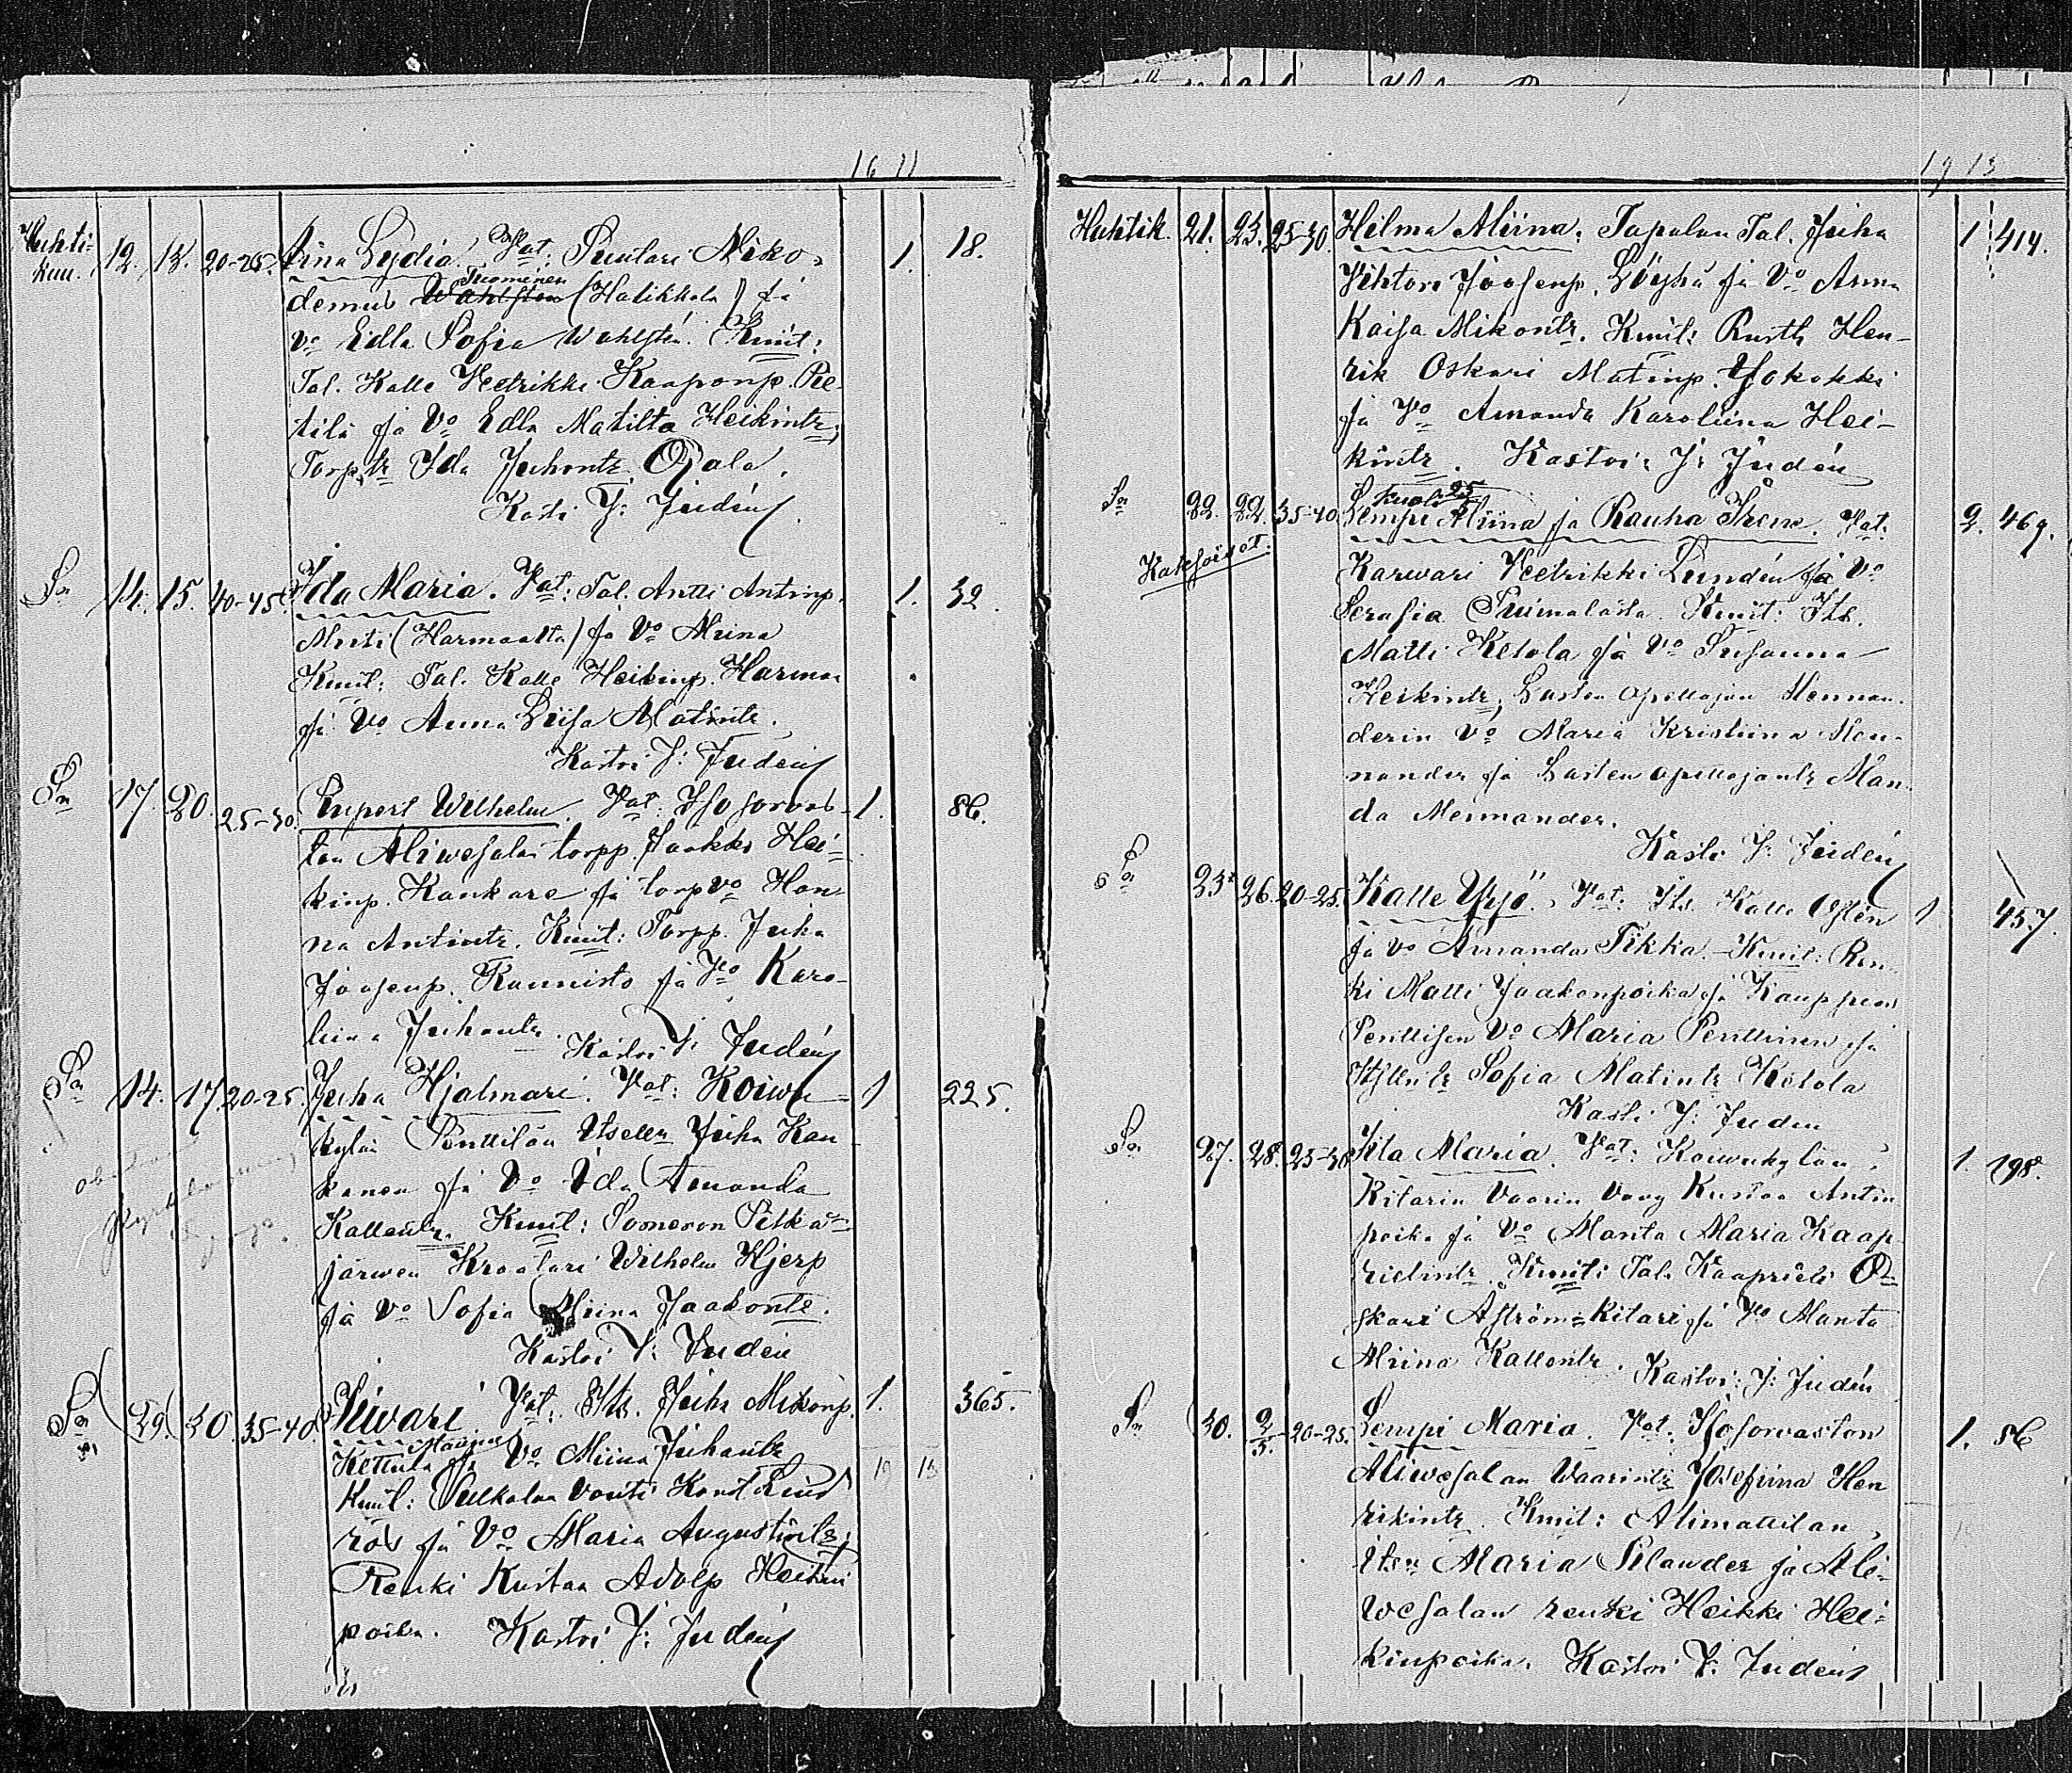 16 11
Huhti-
kuu. 12. 13. 20-25. Lina Lydia. Vat: Suutari Niko- 1. 18.
Tuominen
demus Wahlsten (Halikkola) ja
Vo Edla Sofia Wahlstén. Kumit:
Tal. Kalle Veetrikki Kaaponp. Pie-
tilä ja Vo Edla Matilta Heikintr,
Torp.tr Ida Juhontr. Ojala.
Kasti J: Judén.
Sn 14. 15. 40-45 Ida Maria. Vat: Tal. Antti Antinp. 1. 32.
(Harmaalta) ja Vo Miina
Kumit: Tal. Kalle Heikinp. Harmaa
ja Vo Anna Liisa Matintr.
Kastoi J: Judén
Sn 17. 20. 25-30. Rupert Wilhelm. Vat: Isosorvas- 1. 86.
ton Aliwesalan torpp. Jaakko Hei-
kinp. Kankare ja torp vo Han-
na Antintr. Kumit: Torpp. Juha
Joosenp. Kunnisto ja Vo Karo-
liina Juhontr.
Kastoi J: Judén
Sn 14. 17. 20-25. Juha Hjalmari. Vat: Koiwu- 1 225.
kylän Penttilän Itsellr Juha Kan-
kanen ja Vo Ida Amanda
Kallentr. Kumit: Someron Pitkä-
järwen Kraatari Wilhelm Hjerp
ja Vo Sofia Miina Jaakontr.
Kastoi J: Judén
Sn 29. 30. 35-40. Iiwari Vat: Its. Juha Mikonp. 1. 365.
Kettula ja Vo Miina Juhontr
Kumit: Pulkolan vouti Konst Lind
ros ja Vo Maria Augustintr;
Renki Kustaa Adolf Heikin
poika. Kastoi J: Judén
19 13
Huhtik. 21. 23. 25-30. Hilma Aliina. Tapalan Tal. Juha 1 414.
Vihtori Joosenp. Löyhä ja Vo Anna
Kaisa Mikontr. Kumit: Rusth. Hen-
rik Oskari Matinp. Yokokki
ja Vo Amanda Karoliina Hei-
kintr. Kastoi: J: Judén
kuoli 25
Sn 22. 22. 35-40. Lempi Miina ja Rauha Irene. Vat. 2. 469.
Kaksoiset.
Karwari Veetrikki Lundén ja Vo
Serafia Kumit: Its.
Matti Ketola ja Vo Susanna
Heikintr, Lasten opettajan Mennan-
derin Vo Maria Kristiina Men-
nander ja Lasten opettajantr Man-
da Mennander.
Kasti J: Judén
Sn 23. 26. 20-25. Kalle Yrjö. Vat. Its. Kalle 1 457.
ja Vo Amanda Tikka. Kumit: Ren-
ki Matti Jaakonpoika ja Kauppias
Penttisen Vo Maria Penttinen ja
Itsllntr Sofia Matintr Ketola
Kasti J: Judén
Sn 27. 28. 25-30 Iita Maria. Vat: Koiwukylän 1. 198.
Kitarin Vaarin Vävy Kustaa Antin
poika ja Vo Manta Maria Kaap-
rielintr. Kumit: Tal. Kaaprieli O-
skari Åström=Kitari ja Vo Manta
Miina Kallentr. Kastoi: J: Judén
Sn 30. 2/5. 20-25. Lempi Maria. Vat. Isosorvaston 1. 86
Aliwesalan Waarintr Josefiina Hen
rikintr. Kumit: Alimattilan
Itsn Maria Silander ja Ali-
wesalan renki Heikki Hei-
kinpoika. Kastoi J: Judén